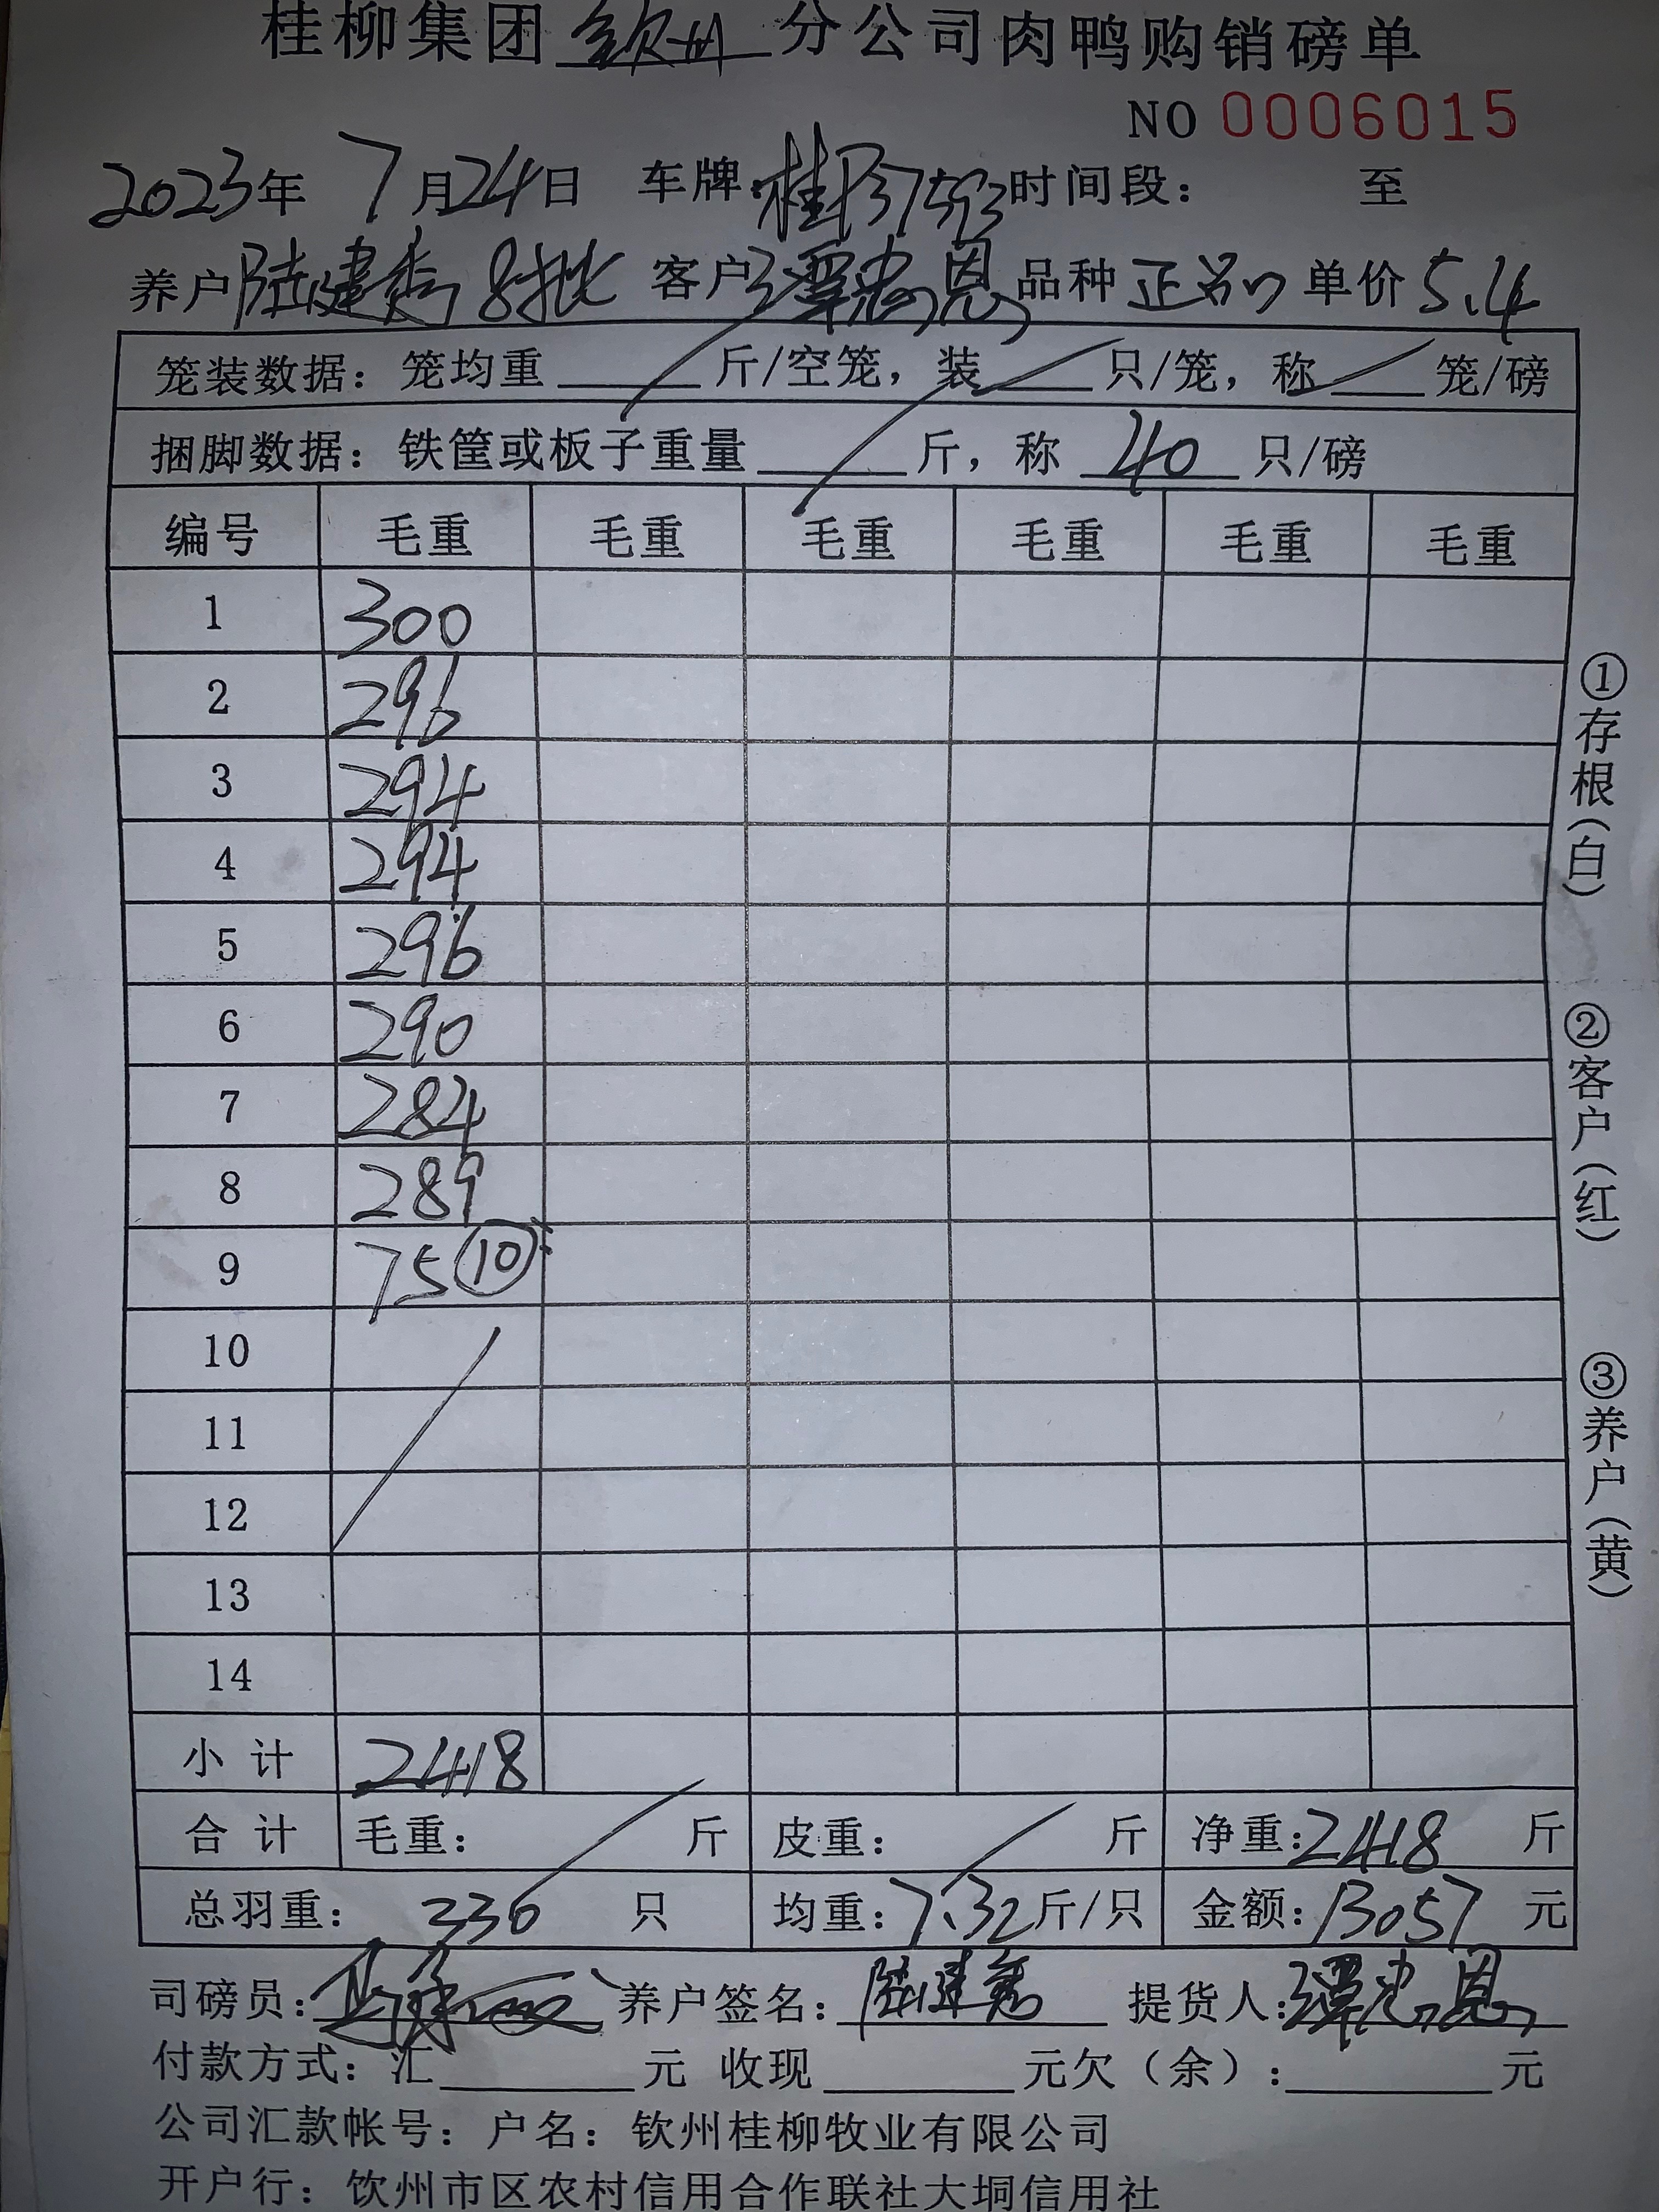 桂柳集团钦州分公司肉鸭购销磅单
NO 0006015
2023年 7月24日 车牌: 时间段: 至
养户陆建秀 8批 客户谭忠恩 品种 正品 单价 5.4
笼装数据: 笼均重 斤/空笼, 装 只/笼, 称 笼/磅
捆脚数据: 铁筐或板子重量 斤, 称 40 只/磅
编号 毛重 毛重 毛重 毛重 毛重 毛重
1 300
2 296
3 294
4 294
5 296
6 290
7 284
8 289
9 75 ⑩
10
11
12
13
14
小计 2418
合计 毛重: 斤 皮重: 斤 净重: 2418 斤
总羽重: 330 只 均重: 7.32 斤/只 金额: 13057 元
司磅员: 养户签名: 陆建秀 提货人: 谭忠恩
付款方式: 汇 元 收现 元欠(余): 元
公司汇款帐号: 户名: 钦州桂柳牧业有限公司
开户行: 钦州市区农村信用合作联社大垌信用社
①存根(白)
②客户(红)
③养户(黄)